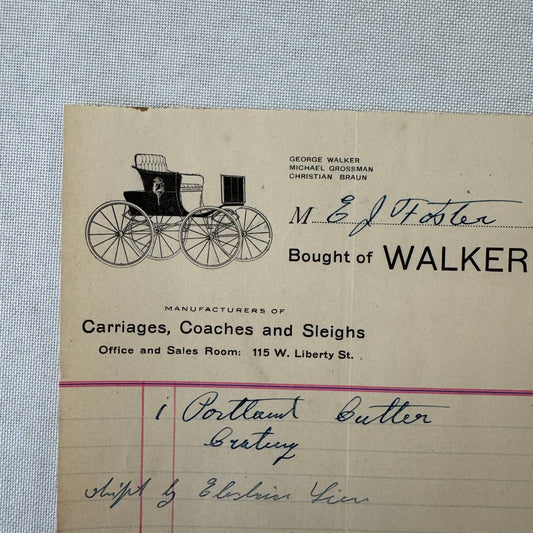 GEORGE WALKER
MICHAEL GROSSMAN
CHRISTIAN BRAUN
M E J Foster
Bought of WALKER
MANUFACTURERS OF
Carriages, Coaches and Sleighs
Office and Sales Room: 115 W. Liberty St.
1 Portland Cutter
Crating
shipt by